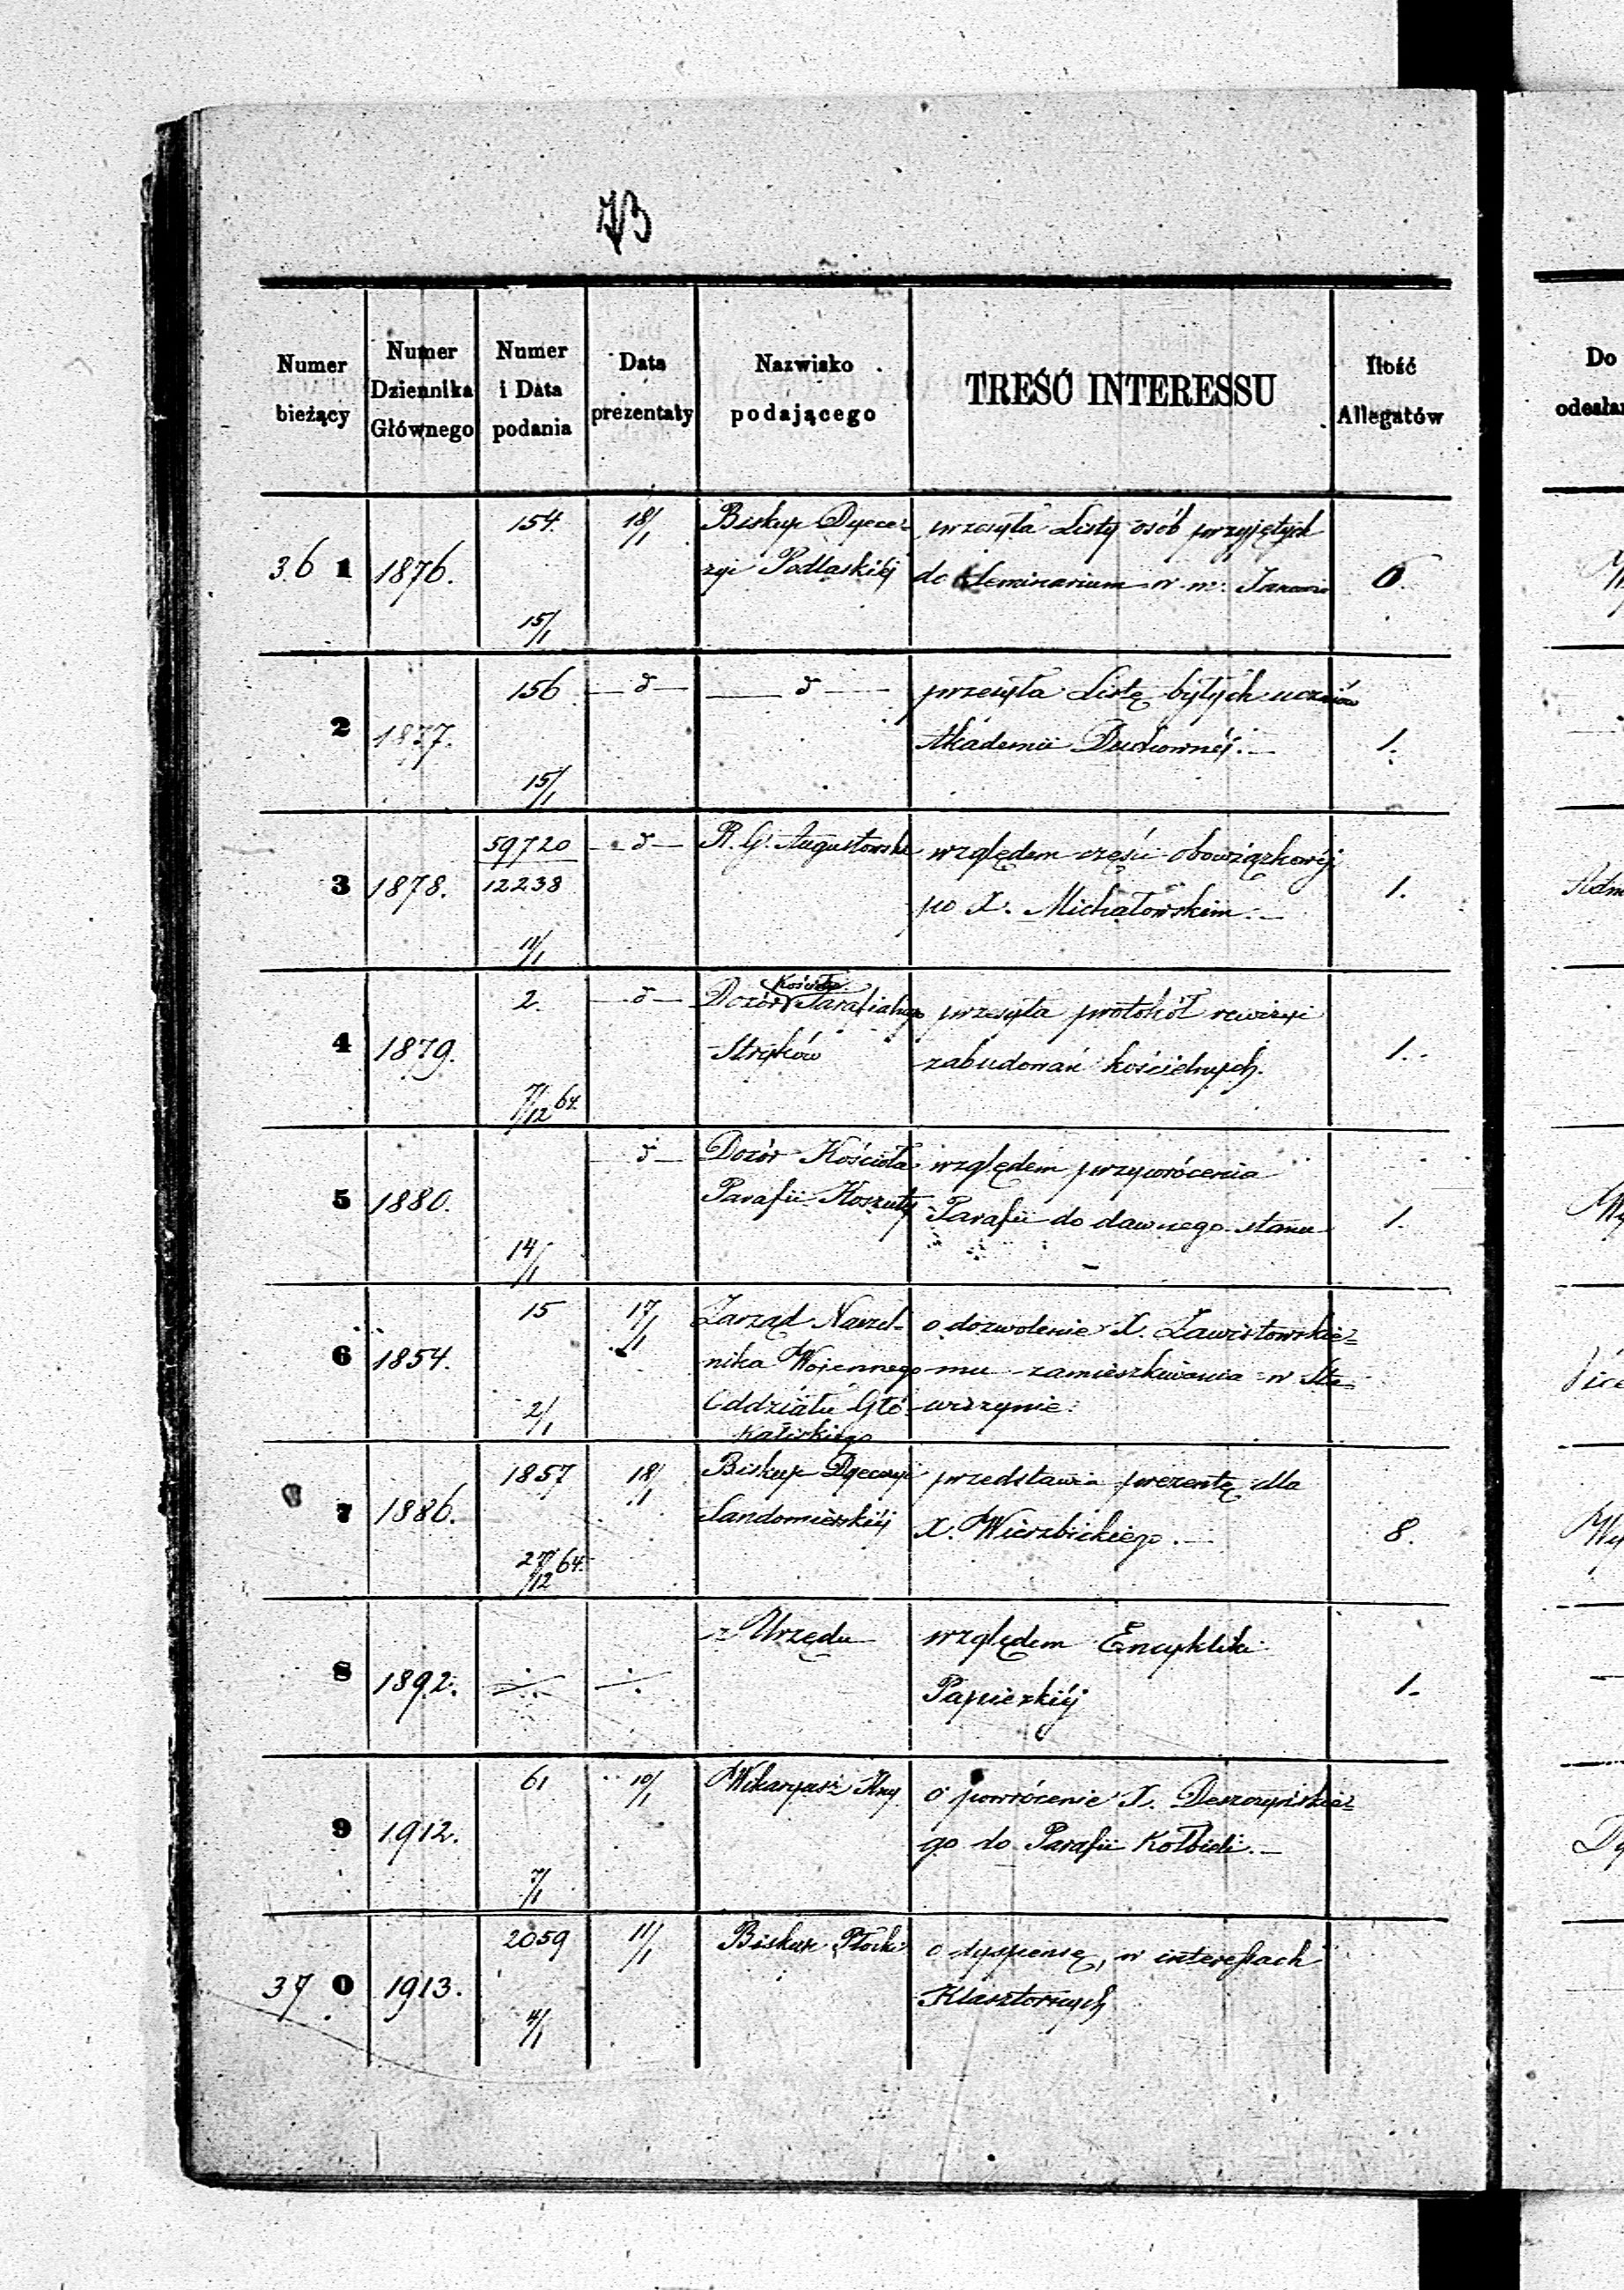 73
Numer bieżący | Numer Dziennika Głównego | Numer i Data podania | Data prezentaty | Nazwisko podającego | TREŚĆ INTERESSU | Ilość Allegatów
36 1 | 1876. | 154. 15/1 | 18/1 | Biskup Dyece= | przesyła Listy osób przyjętych
zyi Podlaskiéj | do Seminarium w m: Janowie | 6.
2 | 1877. | 156 15/1 | — d — | — d — | przesyła Listę byłych uczniów
Akademii Duchownéj. — | 1.
3 | 1878. | 59720 / 12238 11/1 | — d — | R. G. Augustowski | względem części obowiązkowéj
po X. Michałowskim. — | 1.
4 | 1879. | 2. 7/12 64. | — d — | Dozór Kościoła Parafialnego | przesyła protokół rewizyi
Stryków | zabudowań kościelnych. | 1.
5 | 1880. | 14/1 | — d — | Dozór Kościoła | względem przywrócenia
Parafii Koszuty | Parafii do dawnego stanu | 1.
6 | 1854. | 15 2/1 | 17/1 | Zarząd Naczel- | o dozwolenie X. Zawistowskie=
nika Wojennego | mu zamieszkiwania w Sta=
Oddziału Głó | wiszynie.
Kaliskiego
7 | 1886. | 1857 27/12 64. | 18/1 | Biskup Dyecezyi | przedstawia prezentę dla
Sandomierskiéj | X. Wierzbickiego. — | 8.
8 | 1892. | ÷ | ÷ | z Urzędu | względem Encykliki
Papiezkiéj | 1.
9 | 1912. | 61 7/1 | 10/1 | Wikaryusz | o powrócenie X. Deszczyńskie=
go do Parafii Kołbieli. —
37 0 | 1913. | 2059 4/1 | 11/1 | Biskup Płocki | o dyspensę, w interessach
Klasztornych
Do